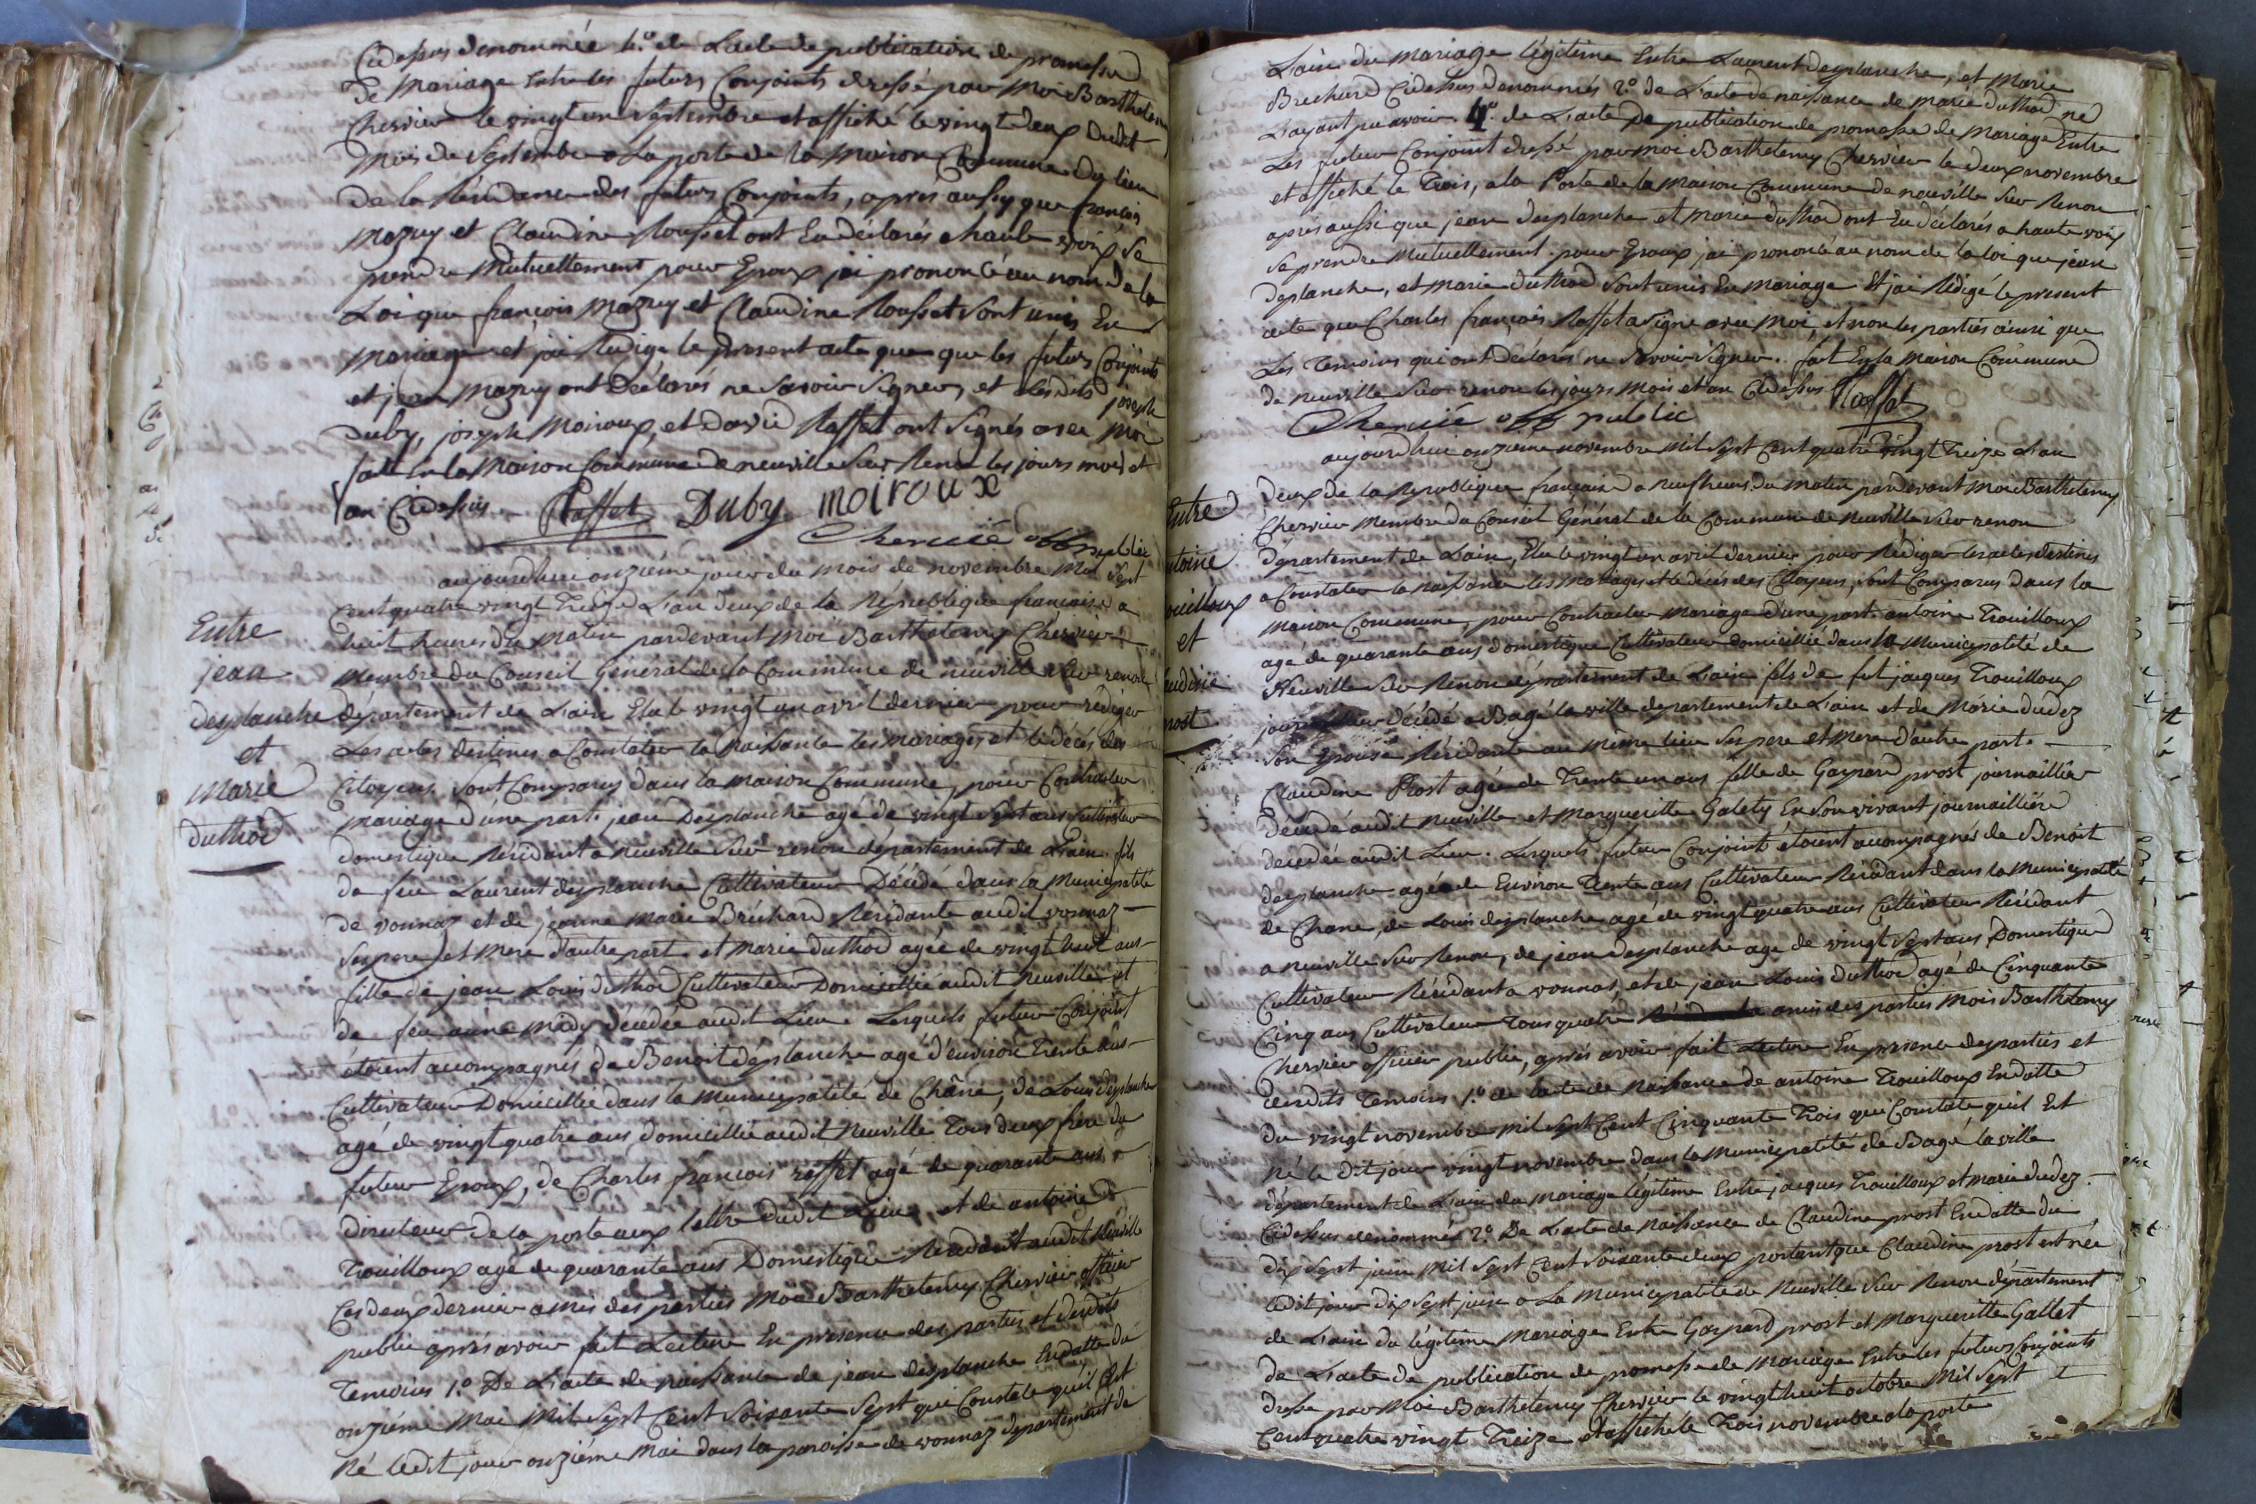 Cidessus denommée 4.º de L'acte de publication de promesse
De Mariage Entre les futurs Conjoints dressé par Moi Barthelemy
Chervier le vingt un Septembre et affiché le vingt deux Dudit
Mois de Septembre a La porte de la Maison Commune Du lieu
De la Résidence des futurs Conjoints, apres aussy que francois
Mazuy et Claudine Rousset ont Eu declarés a haute voix Se
prendre Mutuellement pour Epoux jai prononcé au nom de la
Loi que françois Mazuy et Claudine Rousset Sont unis En
Mariage et j'ai Redigé le present acte que que les futurs Conjoints
et jean Mazuy ont Déclarés ne Savoir Signer, et lesdits joseph
Duby, joseph Moiroux, et David Raffet ont Signés avec Moi
fait En la Maison Commune de neuville Sur Renon les jours mois et
an Cidessus Raffet Duby moiroux
Chervié off public
Entre
jean
desplanche
et
Marie
duthod
aujourdhui onzième jour du mois de novembre Mil Sept
Cent quatre vingt Treize L'an deux de la Republique francaise a
huit heures du Matin pardevant Moi Barthelemy Chervier
Membre du Conseil Général de la Commune de neuville Sur renon
département de L'ain Elu le vingt un avril dernier pour rédiger
Les actes destines a Constater la Naissance les mariages et le décés des
Citoyens Sont Comparus dans la maison Commune pour Contracter
mariage d'une part jean Desplanche agé de vingt Sept ans Cultivateur
domestique Résidant a Neuville Sur renon département de L'ain fils
de feu Laurent desplanche Cultivateur Décédé dans la Municipalité
de vonnaz et de jeanne Marie Bréchard Résidante audit vonnaz
Ses pere et Mere d'autre part et Marie duthod agée de vingt huit ans
fille de jean Louis duthod Cultivateur Domicillié audit Neuville et
de feu Midy décedée audit Lieu. Lesquels futur Conjoint
étoient accompagnés de Benoit desplanche agé d'environ Trente ans
Cultivateur Domicillié dans la municipalité de Chane, de Louis desplanche
agé de vingt quatre ans domicillié audit Neuville Tous deux frere du
futur Epoux, de Charles francois raffet agé de quarante ans
directeur de la poste aux lettre dudit Lieu, et de antoine
Trouilloux agé de quarante ans Domestique Résidant audit Neuville
Ces deux dernier amis des parties Moi Barthelemy Chervier officier
public après avoir fait Lecture En presence des parties et desdits
Temoins 1.º De L'acte de naissance de jean desplanche En datte du
onzième Mai Mil Sept Cent Soixante Sept qui Constate qu'il Est
Né Ledit jour onzième Mai dans la paroisse de vonnaz département de
L'ain du Mariage légitime Entre Laurent desplanche, et Marie
Brechard Cidessus denommés 2.º de L'acte de naissance de marie duthod né
L'ayant pu avoir 4.º de L'acte de publication de promesse de Mariage Entre
Les futur Conjoint dressé par moi Barthelemy Chervier le deux novembre
et affiché le Trois, a la Porte de la Maison Commune de neuville Sur Renon
après aussi que jean desplanche et marie duthod ont Eu déclarés a haute voix
Se prendre Mutuellement pour Epoux jai prononcé au nom de la loi que jean
desplanche, et marie duthod Sont unis En mariage Et j'ai Rédigé le present
acte que Charles françois Raffet a Signé avec Moi, et non les parties ainsi que
Les Temoins qui ont déclarés ne Savoir Signer. fait En la Maison Commune
de neuville Sur renon les jours Mois et an Cidessus Raffet
Chervié off public
Entre
ntoine
ouilloux
et
audine
rost
aujourdhui onzieme novembre Mil Sept Cent quatre vingt Treize L'an
Deux de la Republique française a neuf heures du matin pardevant Moi Barthelemy
Chervier Membre du Conseil Général de la Commune de Neuville Sur renon
département de L'ain, Elu le vingt un avril dernier pour Rédiger les actes destines
a Constater la naissance les Mariages et le décés des Citoyens, Sont Comparus dans la
Maison Commune, pour Contracter Mariage d'une part antoine Trouilloux
agé de quarante ans domestique Cultivateur domicillié dans la Municipalité de
Neuville Sur Renon département de L'ain fils de fut jacques Trouilloux
décédé a Bagé la ville departement de L'ain et de Marie dudez
Son Epouse Résidante au même lieu Ses pere et Mere d'autre part.
Claudine Prost agée de Trente un ans fille de Gaspard prost journaillier
décédé audit Neuville et Margueritte Galety En Son vivant journailliére
decedée audit Lieu. Lesquels futur Conjoint étoient accompagnés de Benoit
desplanche agé de Environ Trente ans Cultivateur Résidant dans la Municipalité
de Chane, de Louis desplanche agé de vingt quatre ans Cultivateur Résidant
a neuville Sur Renon, de jean desplanche age de vingt Sept ans Domestique
Cultivateur Résidant a vonnas, et de jean Louis duthod agé de Cinquante
Cinq ans Cultivateur Tous quatre amis des parties Mois Barthelemy
Chervier officier public, après avoir fait Lecture En presence des parties et
desdits Temoins 1.º de lacte de Naissance de antoine Trouilloux En datte
du vingt novembre mil Sept Cent Cinquante Trois qui Constate qu'il Est
Né le dit jour vingt novembre dans la Municipalité de Bagé la ville
département de L'ain du Mariage légitime Entre jacques Trouilloux et Marie dudez.
Cidessus denommés 2.º De L'acte de Naissance de Claudine prost En datte du
dix Sept juin Mil Sept Cent Soixante deux portant que Claudine prost est née
Ledit jour dix Sept juin a La Municipalité de Neuville Sur Renon département
de L'ain du légitime Mariage Entre Gaspard prost et Marguerite Gallet
de L'acte de publication de promesse de Mariage Entre les futurs Conjoints
dressé par Moi Barthelemy Chervier le vingt huit octobre Mil Sept
Cent quatre vingt Treize et affiché le Trois novembre a la porte